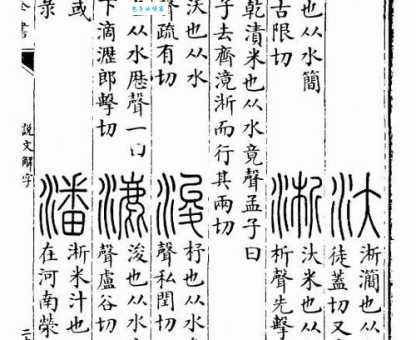 淅灡也从
徒蓋切又
也从水簡
古限切
淅
汏米也从
析聲先擊
乾漬米也从水竟聲孟子曰
子去齊滰淅而行其兩切
沃也从水
聲疏有切
浚
杼也从水
聲私閏切
从水歷聲一曰
下滴瀝郎擊切
漉
浚也从水
聲盧谷切
或
潘
淅米汁也
在河南滎
說文解字